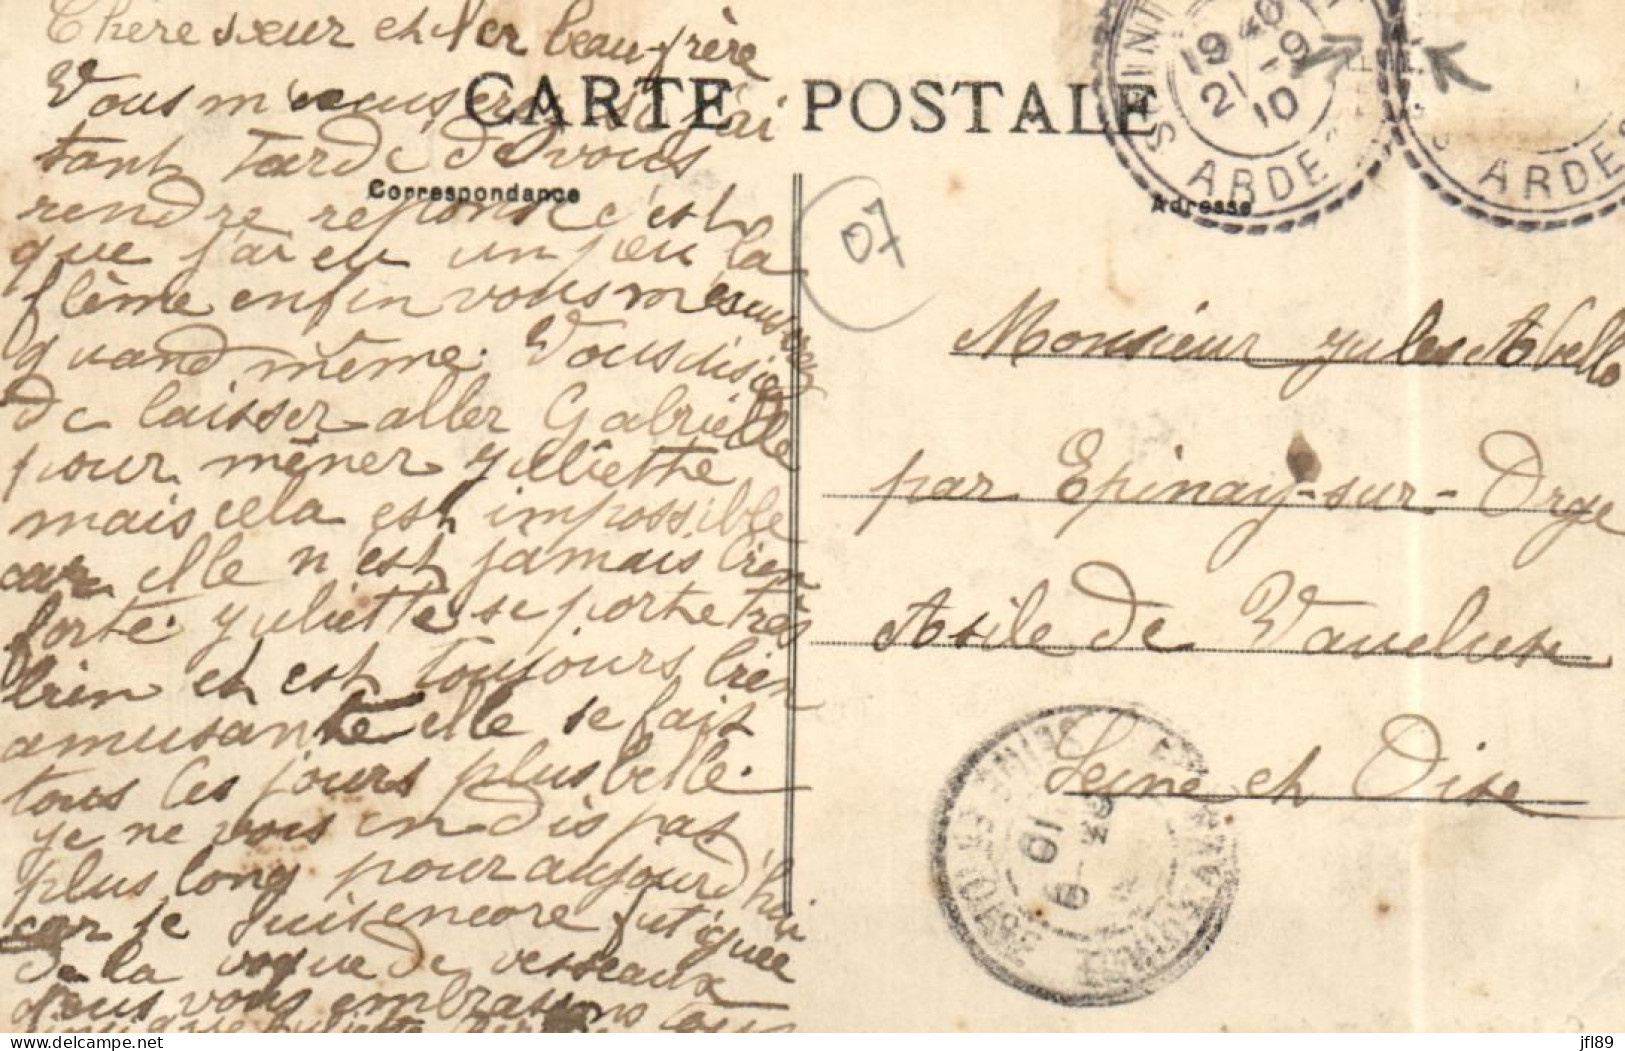 Chère sœur et cher beau-frère
Vous m'excuserez si j'ai
CARTE POSTALE
tant tardé de vous
Correspondance
rendre réponse c'est
que j'ai eu un peu la
flème enfin vous m'excuserez
quand même. Vous disiez
de laisser aller Gabrielle
pour mêner Juliette
mais cela est impossible
car elle n'est jamais bien
forte. Juliette se porte très
bien et est toujours bien
amusante elle se fait
tous les jours plus belle.
je ne vous en dis pas
plus long pour aujourd'hui
car je suis encore fatiguée
de la vogue de vesseaux
nous vous embrassons tous
ainsi que Juliette
Adresse
07
Monsieur Jules Abello
par Epinay-sur-Orge
Asile de Vaucluse
Seine et Oise
SAINT
19 40
21 -9
10
ARDE
ARDE
SEINE ET OISE
10
delcampe.net
jfl89